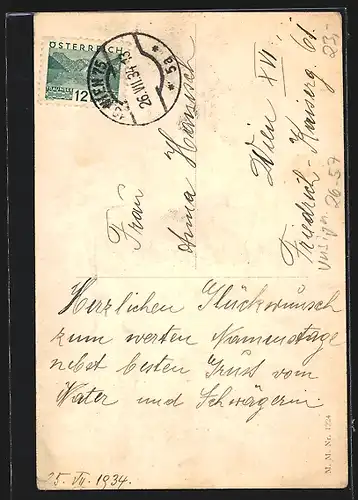 ÖSTERREICH
12
26.VII.34
* 5a *
Frau
Anna Hanisch
Wien XVI
Friedrich-Kaiserg. 61
23,-
26-57
Herzlichen Glückwunsch
zum werten Namenstage
nebst besten Gruss vom
Vater und Schwägerin.
25. VII. 1934.
M. M. Nr. 1224